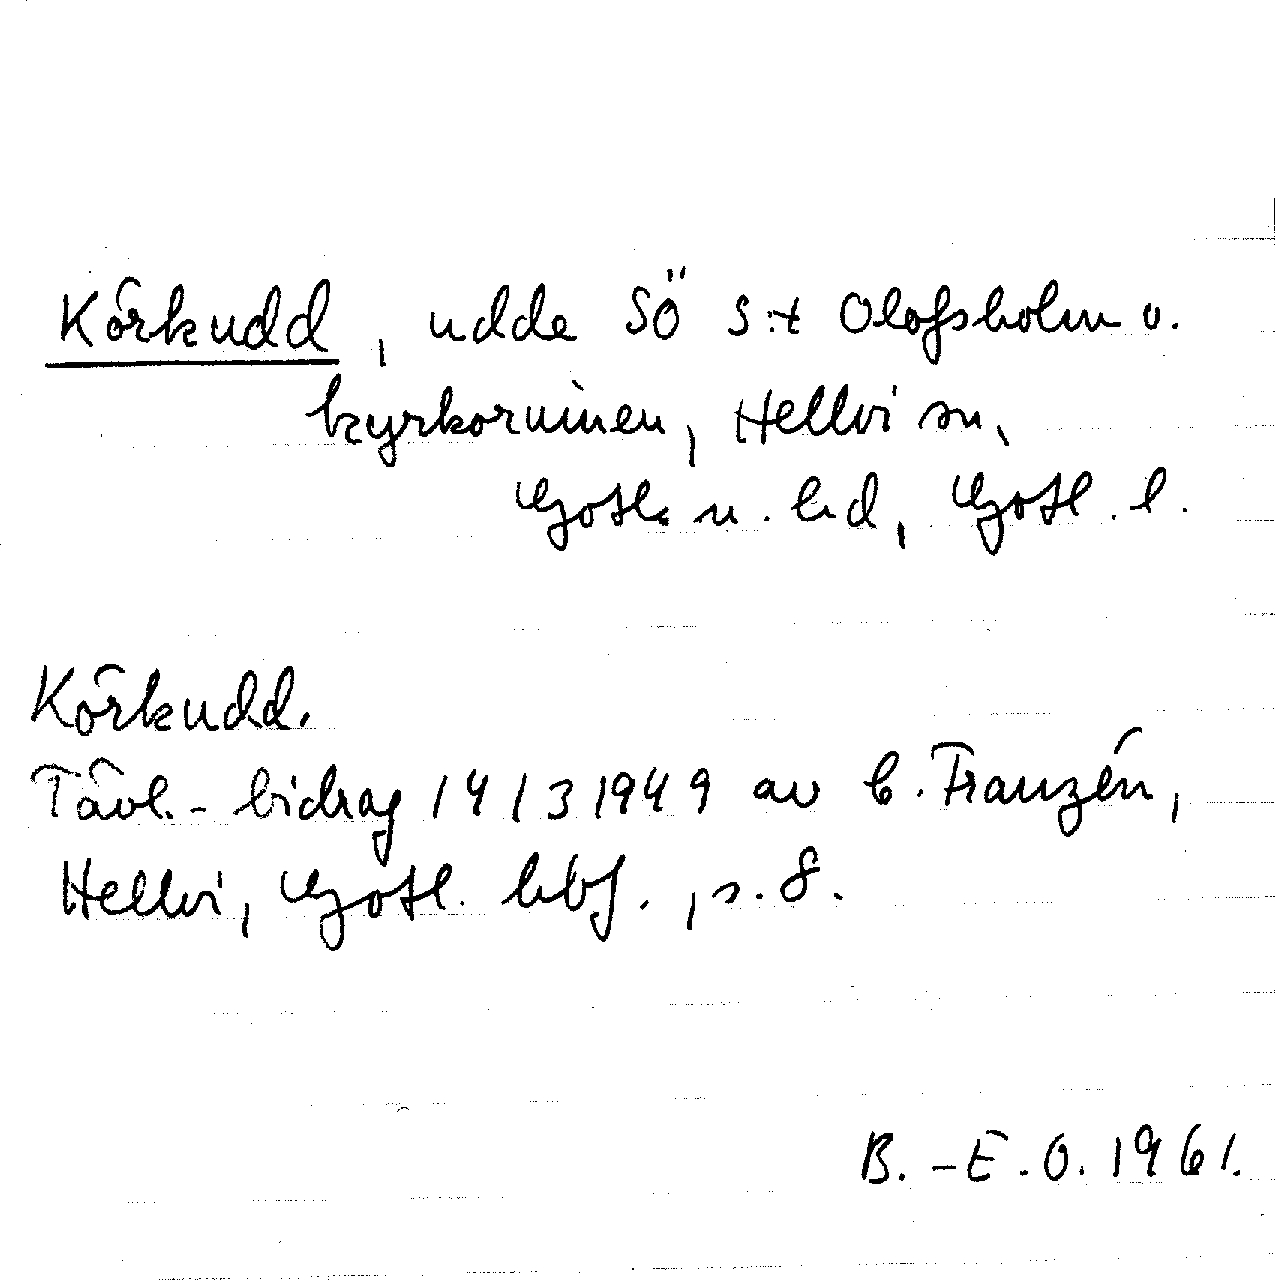 Körkudd, udde SÖ S:t Olofsholm o.
kyrkoruinen, Hellvi sn,
Gotl. n. hd, Gotl. l.
Körkudd.
Tävl.-bidrag 14/3 1949 av C. Franzén,
Hellvi, Gotl. hbf., s. 8.
B.-E.O. 1961.